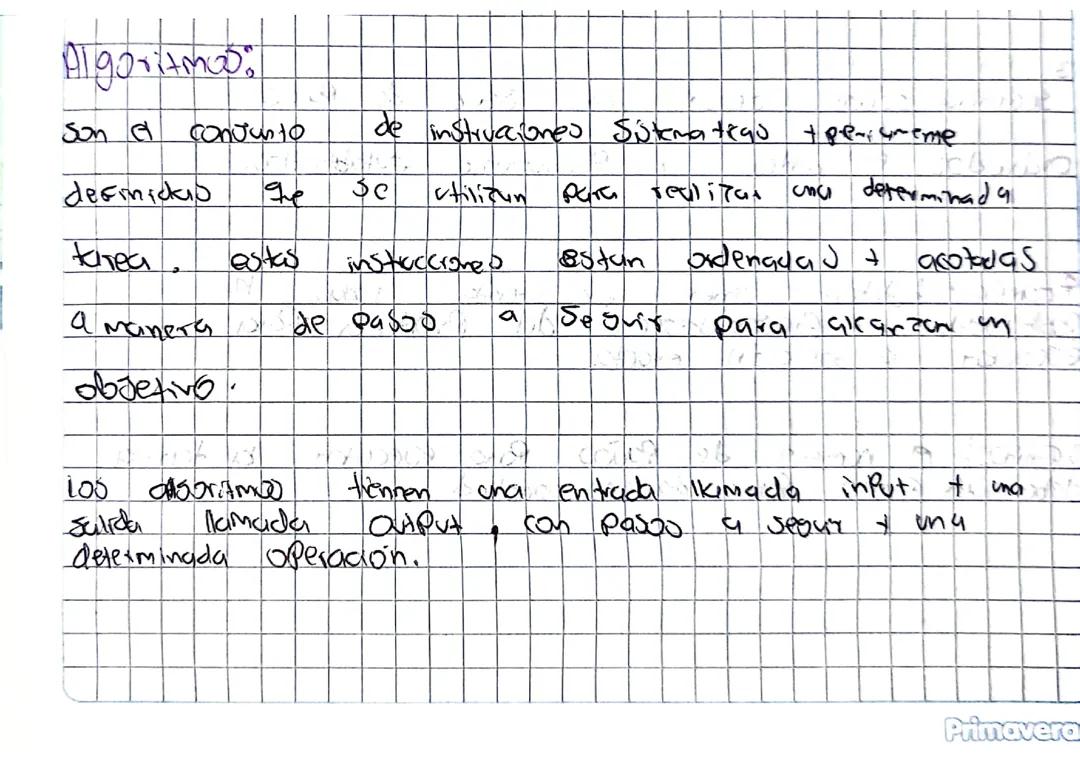 Algoritmos:
son el conjunto de instruciones sistematicas y
definidas que se utilizan para realizar una determinada
tarea, estas instucciones estan ordenadas y acotadas
a manera de pasos a seguir para alcanzar un
objetivo.
los algoritmos tiennen una entrada llamada input y una
salida llamada output, con pasos a seguir y una
determinada operación.
Primavera